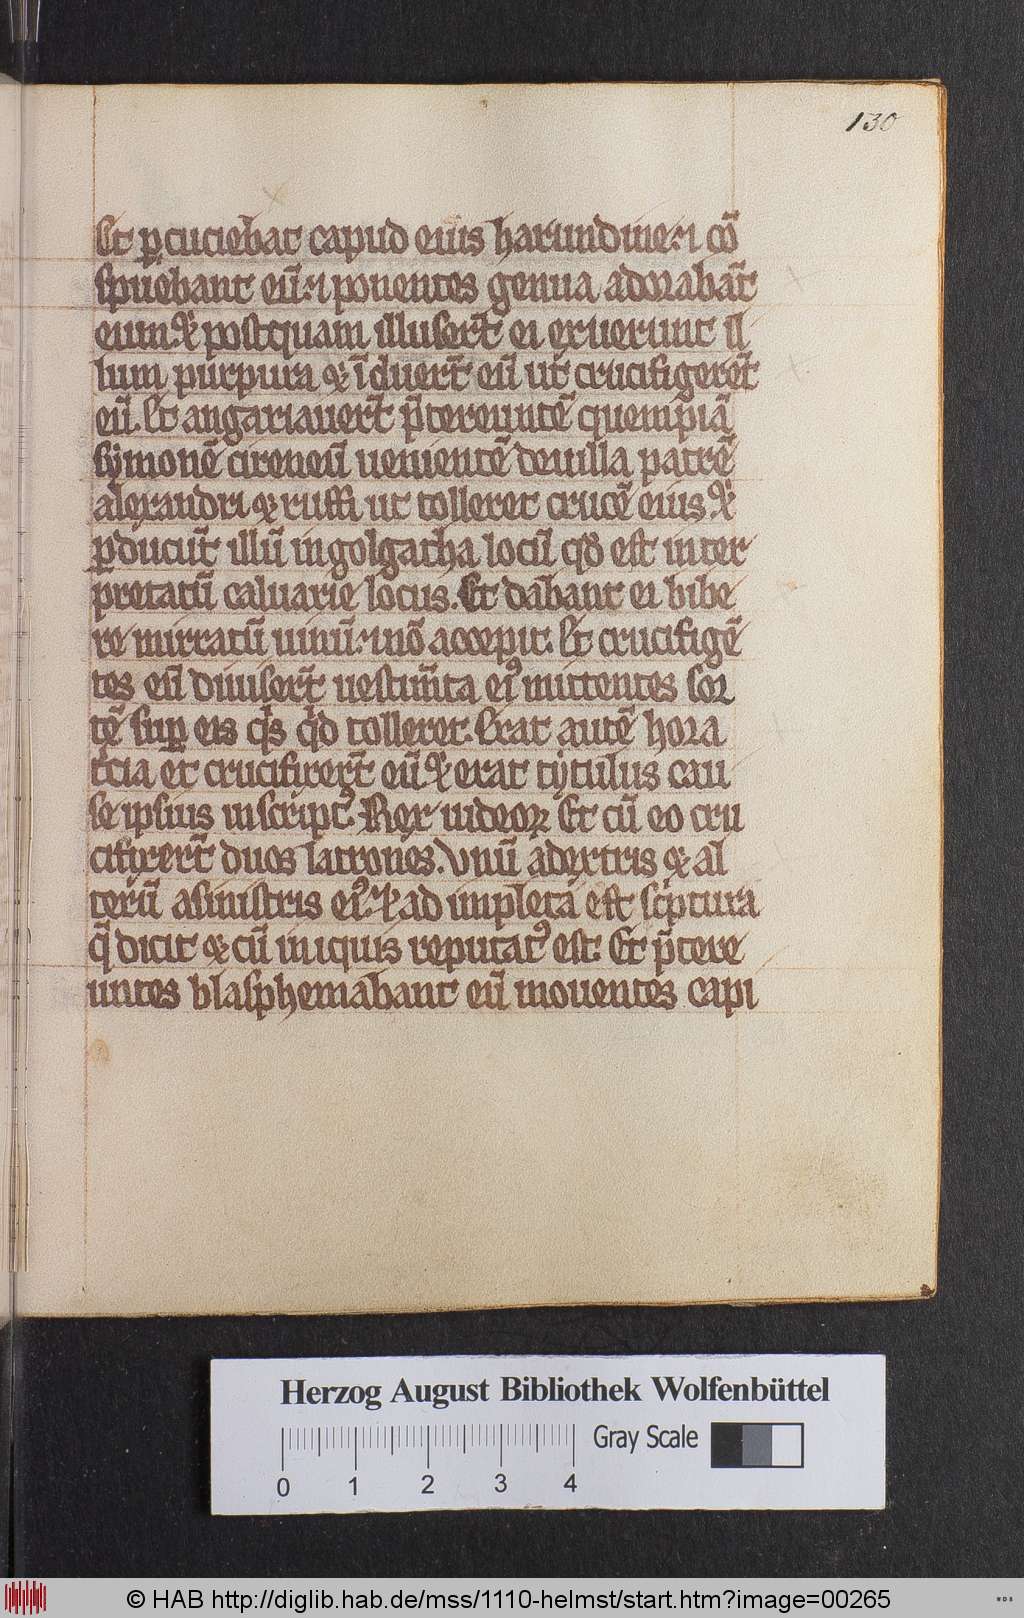 130
Et ꝑcuciebat capud eius harundine ⁊ cō
spuebant eū ⁊ ponentes genua adorabāt
eum ⁊ postquam illusert̄ ei exuerunt il
lum purpura ⁊ īduert̄ eū ut crucifigeret̄
eū. Et angariauert̄ p̄tereuntē quempiā
symonē cireneū uenientē deuilla patrē
alexandri ⁊ ruffi ut tolleret crucē eius ⁊
ꝑducūt illū in golgatha locū qđ est inter
pretatū caluarie locus. Et dabant ei bibe
re mirratū uinū ⁊ nō accepit. Et crucifigē
tes eū diuisert̄ uestim̄ta eiꝰ mittentes sor
tē suꝑ eis qͥs qͥd tolleret. Erat autē hora
t̄cia et crucifixert̄ eū ⁊ erat tytulus cau
se ipsius inscriptꝰ Rex iudeoꝝ Et cū eo cru
cifixert̄ duos latrones. Vnū adextris ⁊ al
terū asinistris eiꝰ. ⁊ ad impleta est scͥptura
q̄ dicit ⁊ cū iniquis reputatꝰ est. Et p̄tere
untes blasphemabant eū mouentes capi
Herzog August Bibliothek Wolfenbüttel
Gray Scale
0 1 2 3 4
© HAB http://diglib.hab.de/mss/1110-helmst/start.htm?image=00265